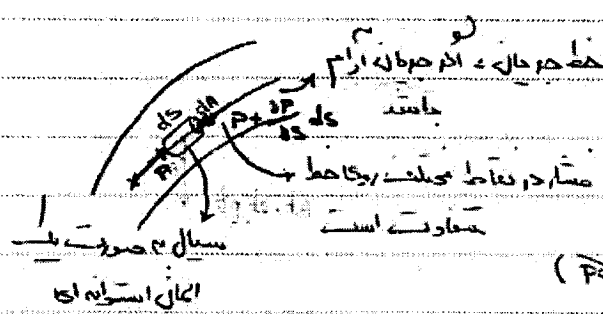 خط جریان، اگر جریان آرام
باشد
P + ∂P/∂S ds
ds
dA
P
فشار در نقاط مختلف روی خط
متفاوت است
سیال به صورت یک
المان استوانه ای